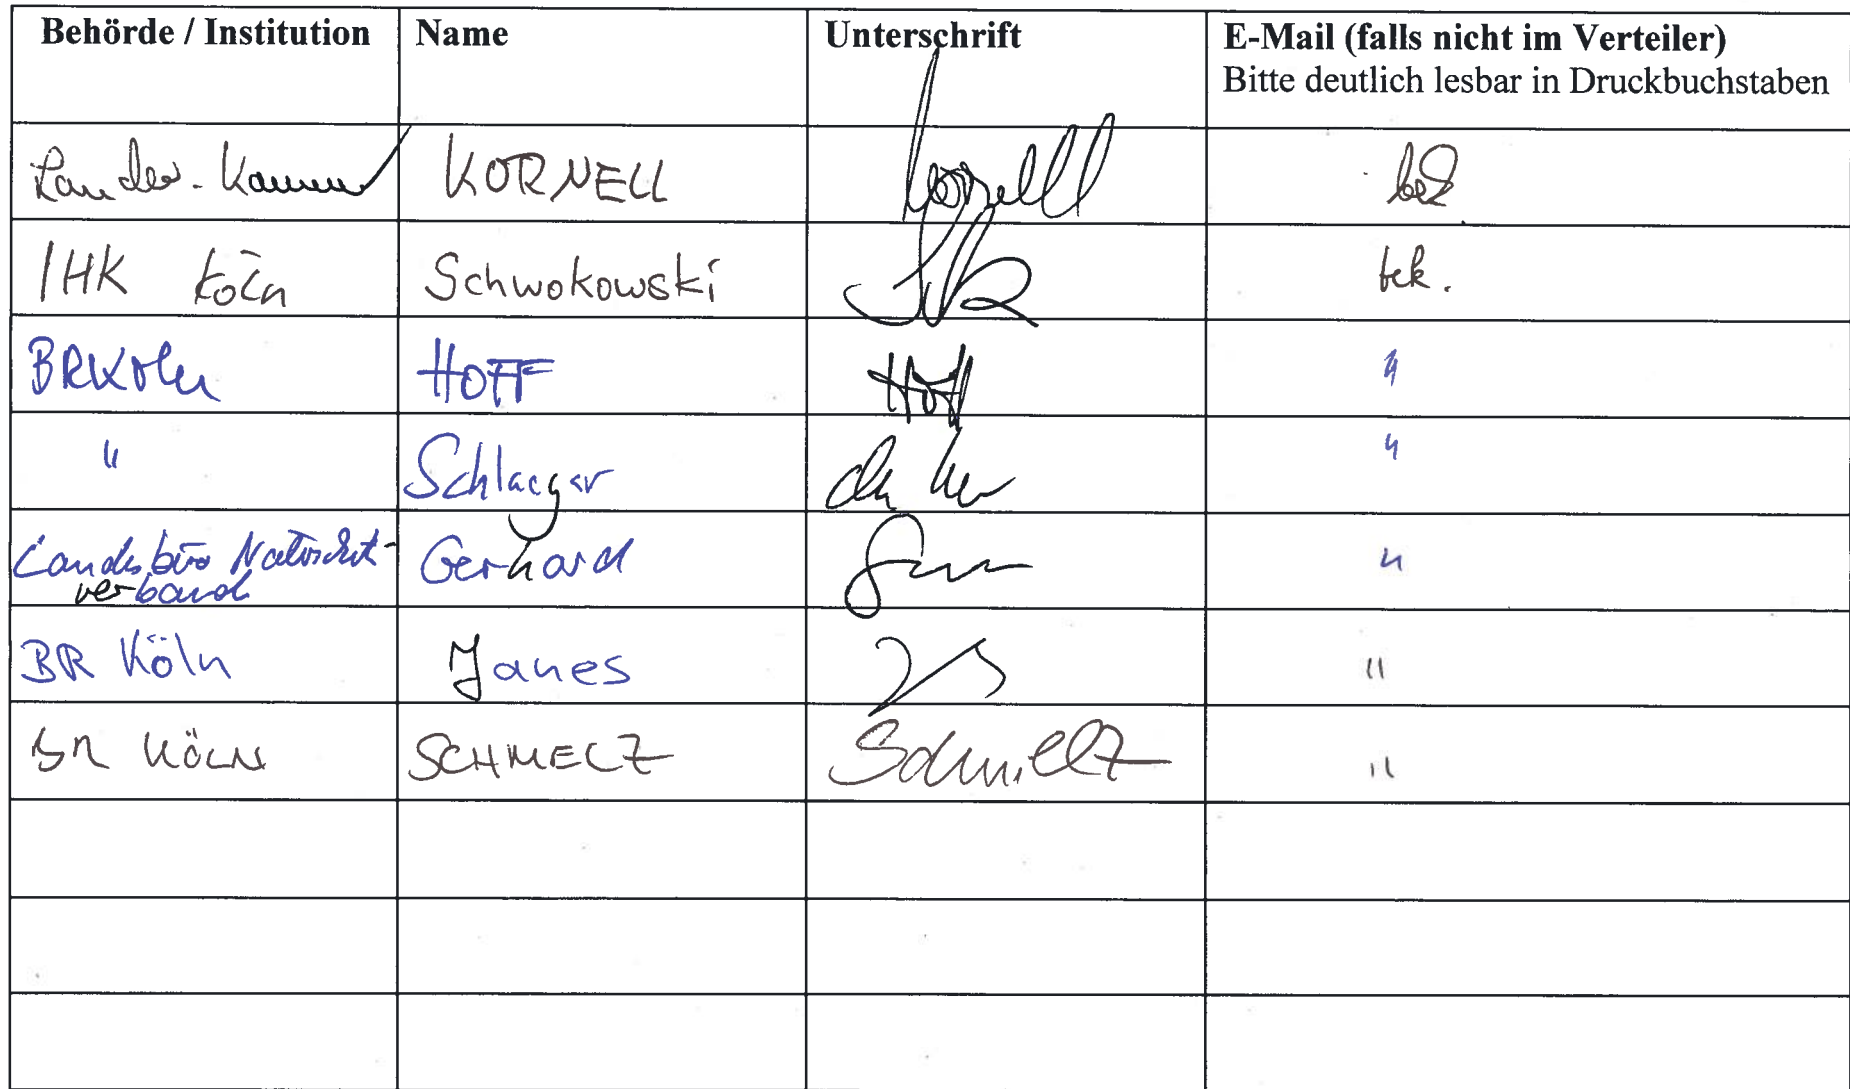 Behörde / Institution Name Unterschrift E-Mail (falls nicht im Verteiler)
Bitte deutlich lesbar in Druckbuchstaben
KORNELL Kornell bek.
IHK Köln Schwokowski bek.
BR Köln HOFF Hoff "
" Schlaeger "
Landesbüro Naturschutz-
verband Gerhard "
BR Köln Janes "
BR KÖLN SCHMELZ Schmelz "